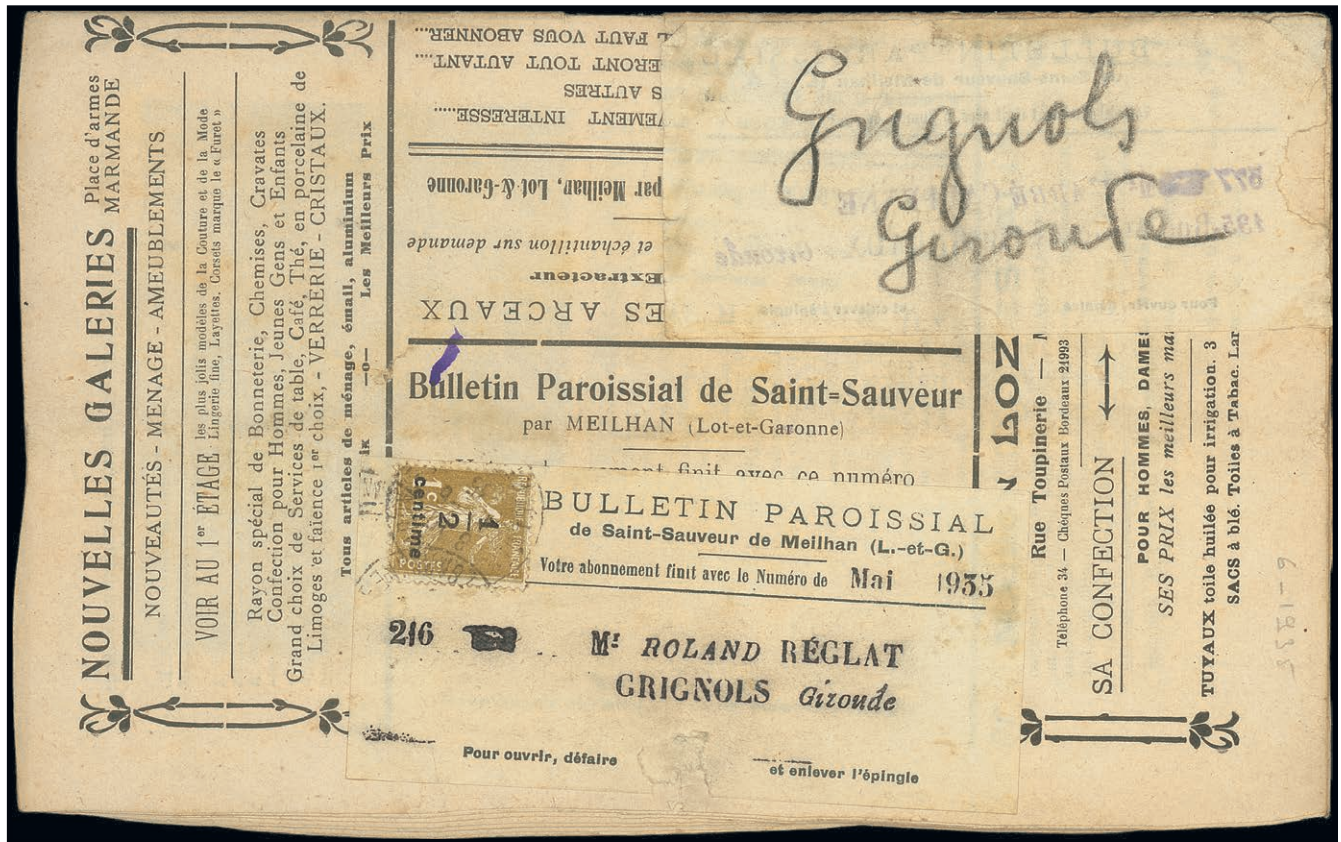 NOUVELLES GALERIES Place d'armes
MARMANDE
NOUVEAUTÉS - MENAGE - AMEUBLEMENTS
VOIR AU 1er ÉTAGE les plus jolis modèles de la Couture et de la Mode
Lingerie fine, Layettes, Corsets marque le « Furet »
Rayon spécial de Bonneterie, Chemises, Cravates
Confection pour Hommes, Jeunes Gens et Enfants
Grand choix de Services de table, Café, Thé, en porcelaine de
Limoges et faïence 1er choix, - VERRERIE - CRISTAUX.
Tous articles de ménage, émail, aluminium
—o— Les Meilleurs Prix
FAUT VOUS ABONNER...
ERONT TOUT AUTANT....
S AUTRES
VEMENT INTERESSE.....
par Meilhan, Lot-&-Garonne
et échantillon sur demande
Extracteur
ES ARCEAUX
Grignols
Gironde
Bulletin Paroissial de Saint-Sauveur
par MEILHAN (Lot-et-Garonne)
finit avec ce numéro
1c
1/2
centime
POSTES
BULLETIN PAROISSIAL
de Saint-Sauveur de Meilhan (L.-et-G.)
Votre abonnement finit avec le Numéro de Mai 1935
216
Mr ROLAND RÉGLAT
GRIGNOLS Gironde
Pour ouvrir, défaire et enlever l'épingle
LOZ
Rue Toupinerie —
Téléphone 34 — Chèques Postaux Bordeaux 21993
SA CONFECTION
POUR HOMMES, DAMES
SES PRIX les meilleurs ma
TUYAUX toile huilée pour irrigation. 3
SACS à blé. Toiles à Tabac. Lar